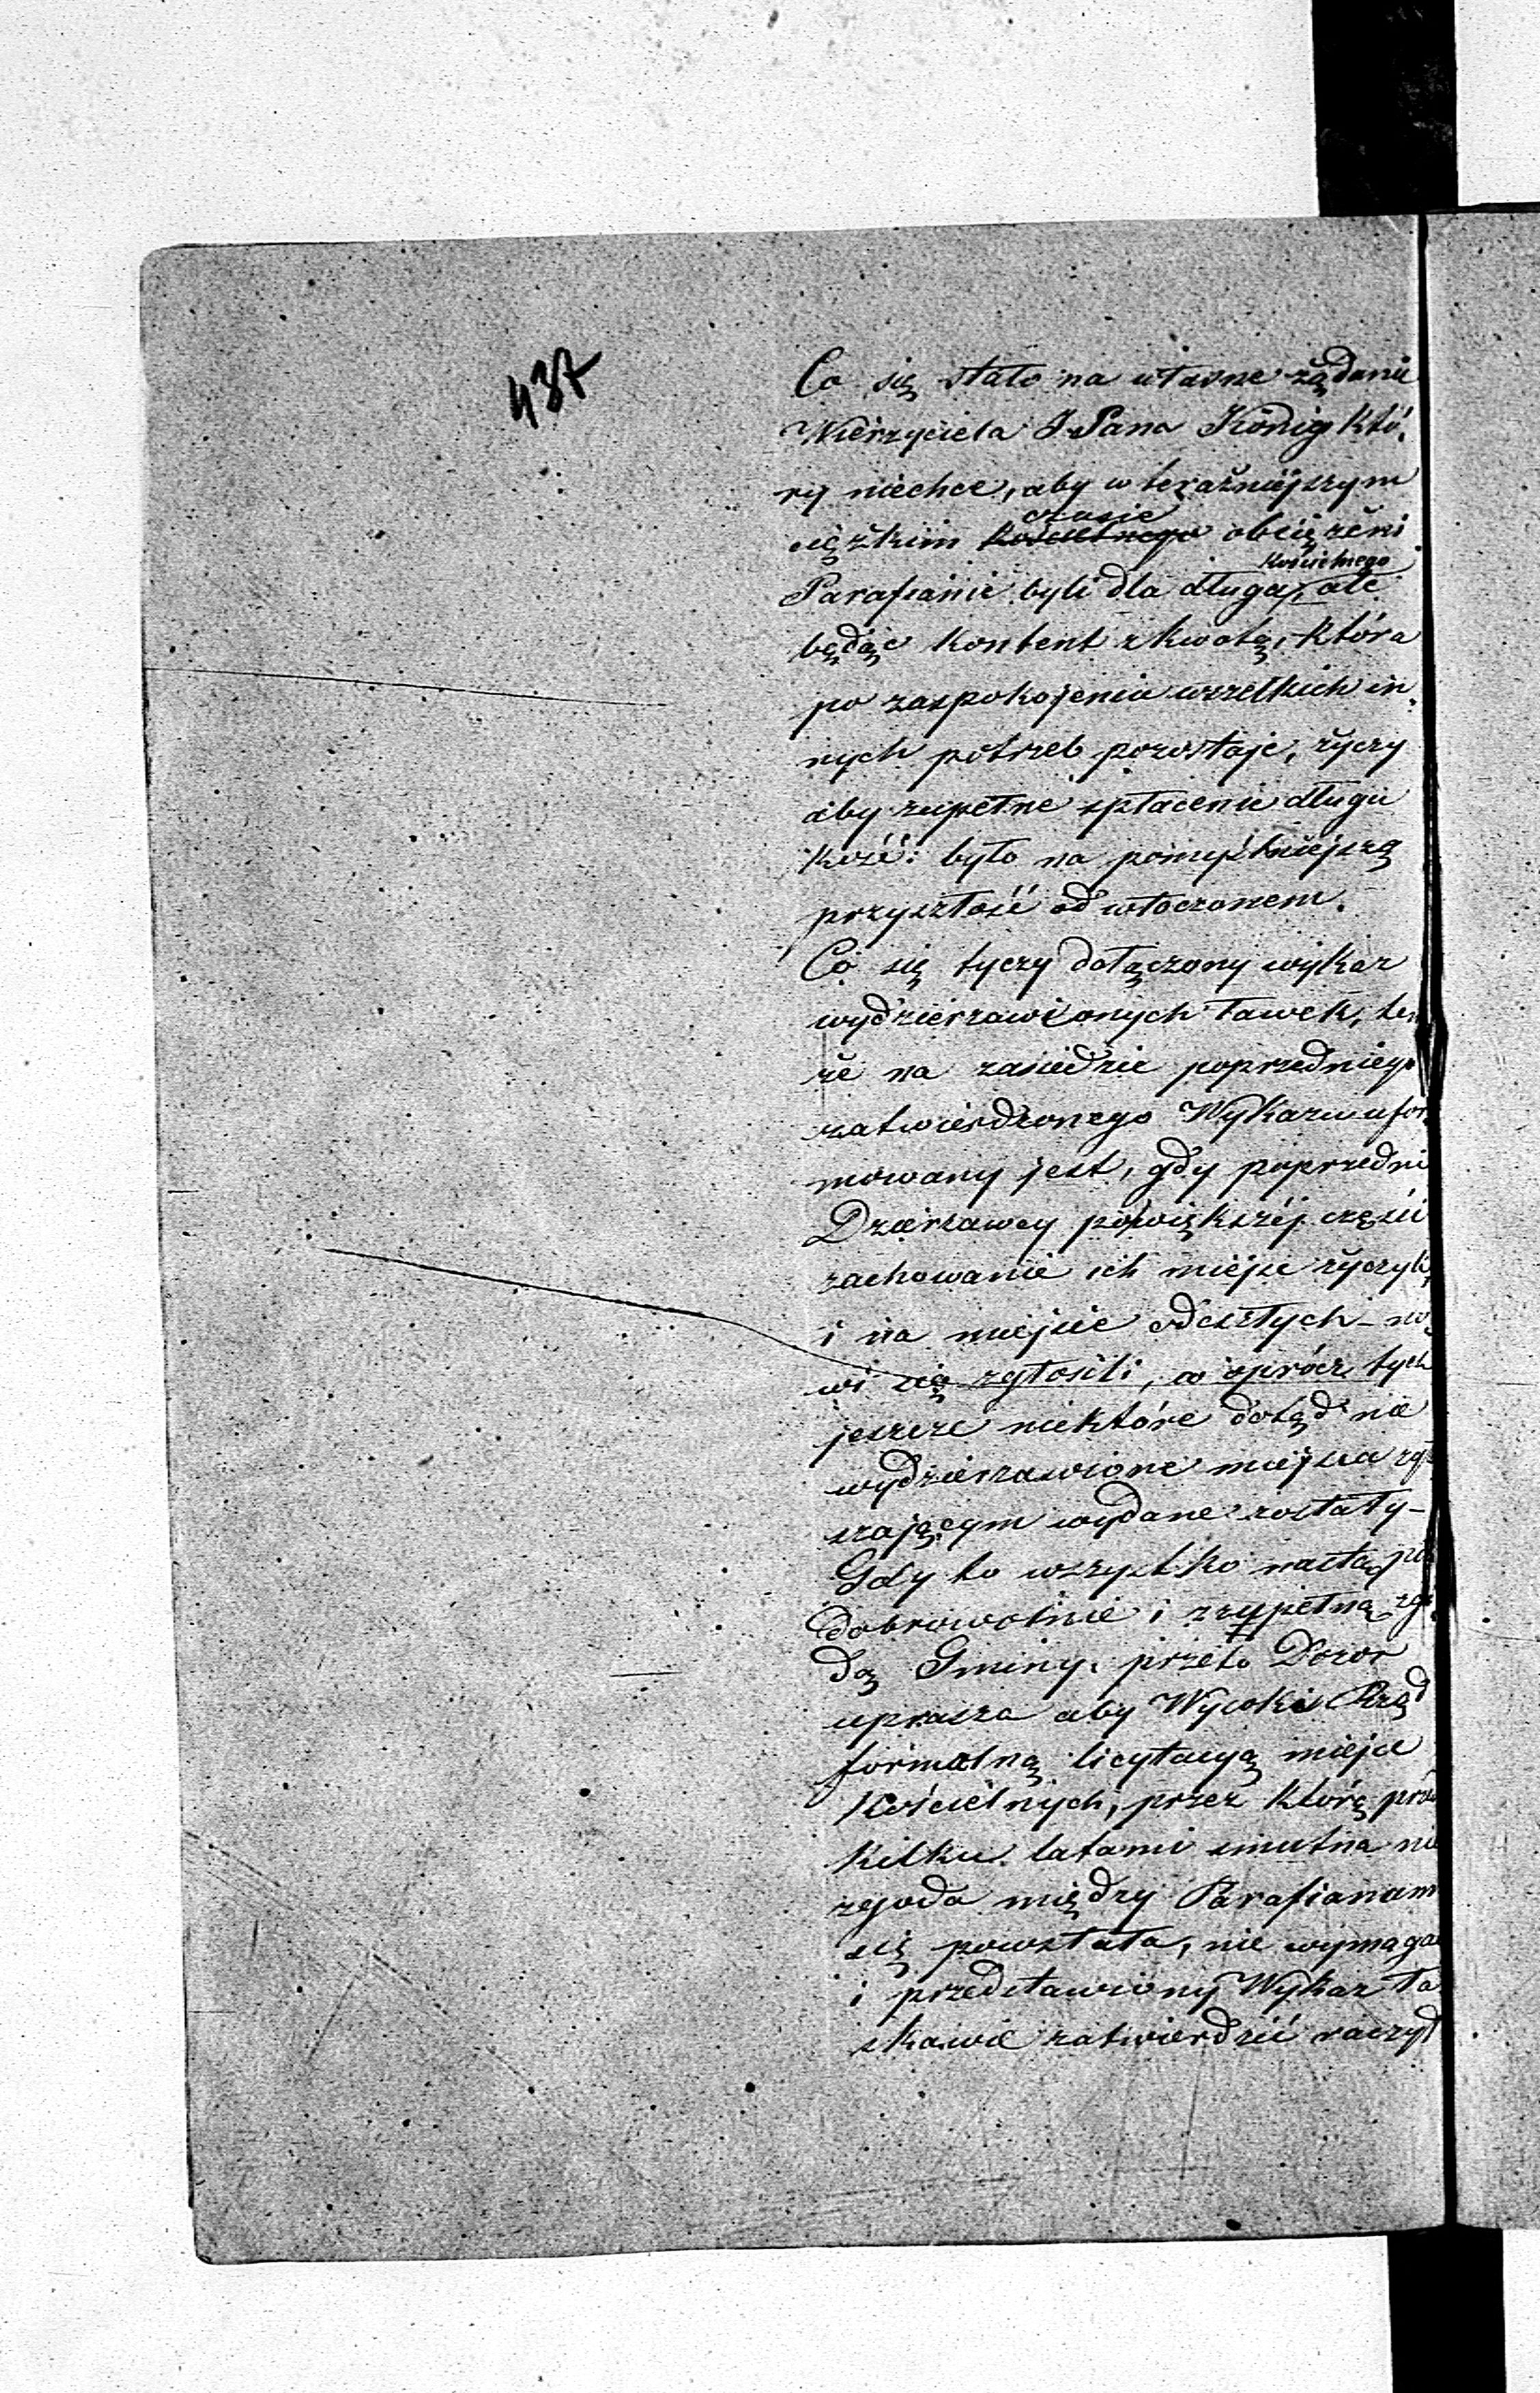 437
Co się stało na własne żądanie
Wierzyciela J Pana König któ
ry niechce, aby w teraźniejszym
ciężkim kościelnego czasie obciążeni
Parafianie byli dla długa kościelnego, ale
będąc kontent z kwotą, która
po zaspokojeniu wszelkich in
nych potrzeb pozostaje, życzy
aby zupełne spłacenie długu
kość: było na pomyślniejszą
przyszłość odwłoczonem.
Co się tyczy dołączony wykaz
wydzierzawionych ławek, ten
że na zasiedzie poprzedniego
zatwierdzonego Wykazu ufor
mowany jest, gdy poprzedni
Dzierzawcy powiększéj części
zachowanie ich miejsc życzyli
i na miejsce odeszłych – no
wi się zgłosili, a oprócz tych
jeszcze niektóre dotąd nie
wydzierzawione miejsca zgł
szającym wydane zostały –
Gdy to wszystko nastąpi
dobrowolnie i zupełną zgo
dą Gminy, przeto Dozor
uprasza aby Wysoki Rząd
formalną licytacyą miejsc
Kościelnych, przez którą prze
kilku latami smutna nie
zgoda między Parafianam
się powstała, nie wymagał
i przedstawiony Wykaz ła
skawie zatwierdzić raczył